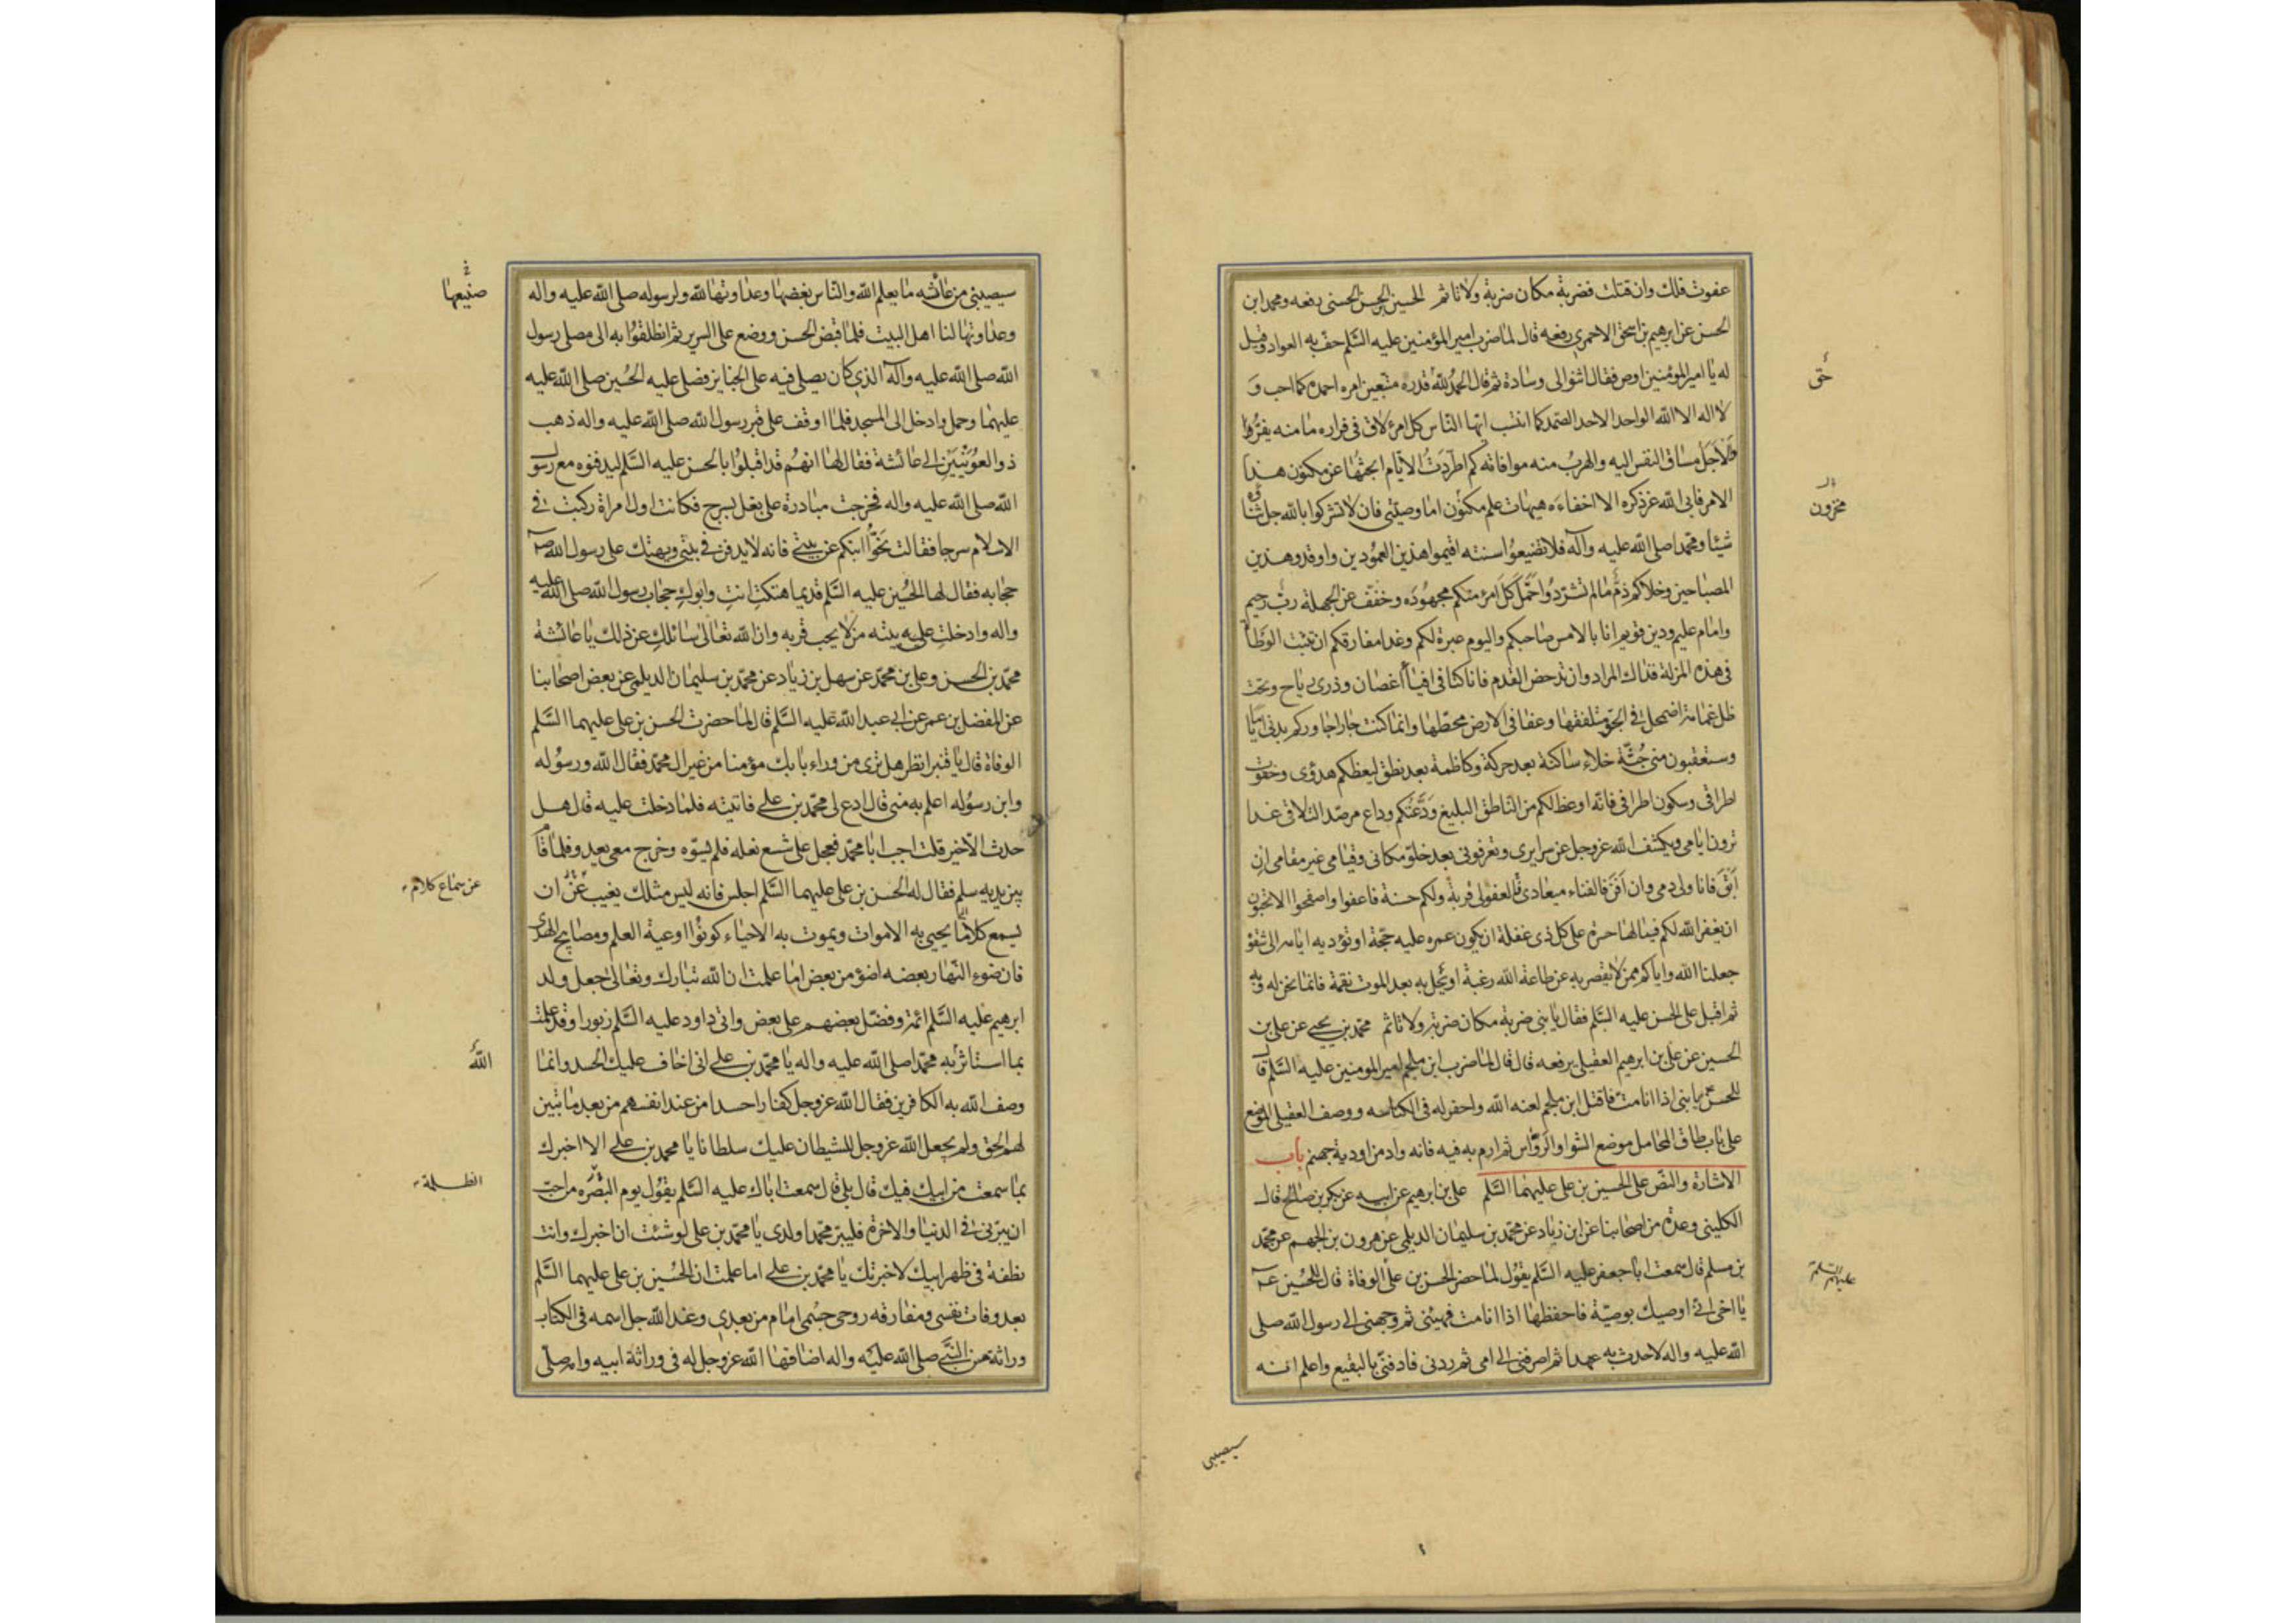 عفوت فلك وان قتلت فضربة مكان ضربة ولا تاثم الحسين بن الحسن الحسنى رفعه ومحمد ابن
الحسن عن ابرهيم بن اسحق الاحمرى رفعه قال لما ضرب امير المؤمنين عليه السّلم حفّ به العواد وقيل
له يا امير المؤمنين اوص فقال اثنوا لى وسادة ثم قال الحمد للّه قدره متبعين امره احمده كما احب و
حق
لا اله الا اللّه الواحد الاحد الصّمد كما انتسب ايّها النّاس كل امرئ لاق فى فراره ما منه يفرّ وا
لاجل مساق النفس اليه والهرب منه موافاته كم اطّردت الايّام ابحثها عن مكنون هذا
الامر فابى اللّه عز ذكره الا اخفاءه هيهات علم مكنون اما وصيّتى فان لا تشركوا باللّه جل ثناؤه
مخزون
شيئا ومحمّدا صلى اللّه عليه وآله فلا تضيعوا سنته اقيموا هذين العمودين واوقدوا هذين
المصباحين وخلاكم ذمّ ما لم تشردوا حمّل كل امرئ منكم مجهوده وخفّف عن الجهلة ربّ رحيم
وامام عليم ودين قويم انا بالامس صاحبكم واليوم عبرة لكم وغدا مفارقكم ان تثبت الوطاة
فى هذه المزلة فذاك المراد وان تدحض القدم فانا كنا فى افياء اغصان وذرى رياح وتحت
ظل غمامة اضمحل فى الجوّ متلفقها وعفا فى الارض محطّها وانما كنت جارا جاوركم بدنى اياما
وستعقبون منى جثّة خلاء ساكنة بعد حركة وكاظمة بعد نطق ليعظكم هدوّى وخفوت
اطراقى وسكون اطرافى فانّه اوعظ لكم من النّاطق البليغ ودّعتكم وداع مرصد للتلاقى غدا
ترون ايامى ويكشف اللّه عز وجل عن سرايرى وتعرفونى بعد خلوّ مكانى وقيامى غير مقامى ان
ابق فانا ولى دمى وان افن فالفناء ميعادى العفو لى قربة ولكم حسنة فاعفوا واصفحوا الا تحبون
ان يغفر اللّه لكم فيا لها حسرة على كل ذى غفلة ان يكون عمره عليه حجّة او تؤديه ايامه الى شقوة
جعلنا اللّه واياكم ممن لا يقصر به عن طاعة اللّه رغبة او تحل به بعد الموت نقمة فانما نحن له وبه
ثم اقبل على الحسن عليه السّلم فقال يا بنى ضربة مكان ضربة ولا تاثم محمّد بن يحيى عن على بن
الحسين عن على بن ابرهيم العقيلى يرفعه قال قال لما ضرب ابن ملجم امير المومنين عليه السّلم قال
للحسن يا بنى اذا انا مت فاقتل ابن ملجم لعنه اللّه واحفر له فى الكناسه ووصف العقيلى الموضع
على باب طاق المحامل موضع الشوا والروّاس ثم ارم به فيه فانه واد من اودية جهنم باب
الاشارة والنصّ على الحسين بن على عليهما السّلم على بن ابرهيم عن ابيه عن بكر بن صالح قال
الكلينى وعدة من اصحابنا عن ابن زياد عن محمّد بن سليمان الديلمى عن هرون بن الجهم عن محمّد
بن مسلم قال سمعت ابا جعفر عليه السّلم يقول لما حضر الحسن بن على الوفاة قال للحسين عـ
عليهم السلم
يا اخى انى اوصيك بوصيّة فاحفظها اذا انا مت فهيئنى ثم وجهنى الى رسول اللّه صلى
اللّه عليه واله لاحدث به عهدا ثم اصرفنى الى امى ثم ردنى فادفنّى بالبقيع واعلم انه
سيصيبنى
سيصيبنى من عائشه ما يعلم اللّه والنّاس بغضها وعداوتها للّه ولرسوله صلى اللّه عليه واله
صنيعها
وعداوتها لنا اهل البيت فلما قبض الحسن ووضع على السرير ثم انطلقوا به الى مصلى رسول
اللّه صلى اللّه عليه وآله الذى كان يصلى فيه على الجنايز فصلى عليه الحسين صلى اللّه عليه
عليهما وحمل وادخل الى المسجد فلما اوقف على قبر رسول اللّه صلى اللّه عليه واله ذهب
ذو العوينين الى عائشة فقال لها انهم قد اقبلوا بالحسن عليه السّلم ليدفنوه مع رسول
اللّه صلى اللّه عليه واله فخرجت مبادرة على بغل بسرج فكانت اول امراة ركبت فى
الاسلام سرجا فقالت نحّوا ابنكم عن بيتى فانه لا يدفن فى بيتى ويهتك على رسول اللّه صـ
حجابه فقال لها الحسين عليه السّلم قديما هتكت انت وابوك حجاب رسول اللّه صلى اللّه عليه
واله وادخلت عليه بيته من لا يحب قربه وان اللّه تعالى سائلك عن ذلك يا عائشة
محمّد بن الحسن وعلى بن محمّد عن سهل بن زياد عن محمّد بن سليمان الديلمى عن بعض اصحابنا
عن المفضل بن عمر عن ابى عبد اللّه عليه السّلم قال لما حضرت الحسن بن على عليهما السّلم
الوفاة قال يا قنبر انظر هل ترى من وراء بابك مؤمنا من غير ال محمّد فقال اللّه ورسوله
وابن رسوله اعلم به منى قال ادع لى محمّد بن على فاتيته فلما دخلت عليه قال هل
حدث الا خير قلت اجب ابا محمّد فعجل على شسع نعله فلم يسوّه وخرج معى يعدو فلما قام
بين يديه سلم فقال له الحسن بن على عليهما السّلم اجلس فانه ليس مثلك يغيب عن ان
عن سماع كلام
يسمع كلاما يحيى به الاموات ويموت به الاحياء كونوا اوعية العلم ومصابيح الهدى
فان ضوء النّهار بعضه اضؤ من بعض اما علمت ان اللّه تبارك وتعالى جعل ولد
ابرهيم عليه السّلم ائمة وفضّل بعضهم على بعض واتى داود عليه السّلم زبورا وقد علمت
بما استاثر به محمّدا صلى اللّه عليه واله يا محمّد بن على انى اخاف عليك الحسد وانما
اللّه
وصف اللّه به الكافرين فقال اللّه عز وجل كفارا حسدا من عند انفسهم من بعد ما تبين
لهم الحق ولم يجعل اللّه عز وجل للشيطان عليك سلطانا يا محمد بن على الا اخبرك
بما سمعت من ابيك فيك قال بلى قال سمعت اباك عليه السّلم يقول يوم البصره من احب
الظلمة
ان يبرّنى فى الدنيا والاخرة فليبر محمّدا ولدى يا محمّد بن على لو شئت ان اخبرك وانت
نطفة فى ظهر ابيك لاخبرتك يا محمّد بن على اما علمت ان الحسين بن على عليهما السّلم
بعد وفات نفسى ومفارقه روحى جسمى امام من بعدى وعند اللّه جل اسمه فى الكتاب
وراثة من النبى صلى اللّه عليه واله اضافها اللّه عز وجل له فى وراثة ابيه وامه صلى